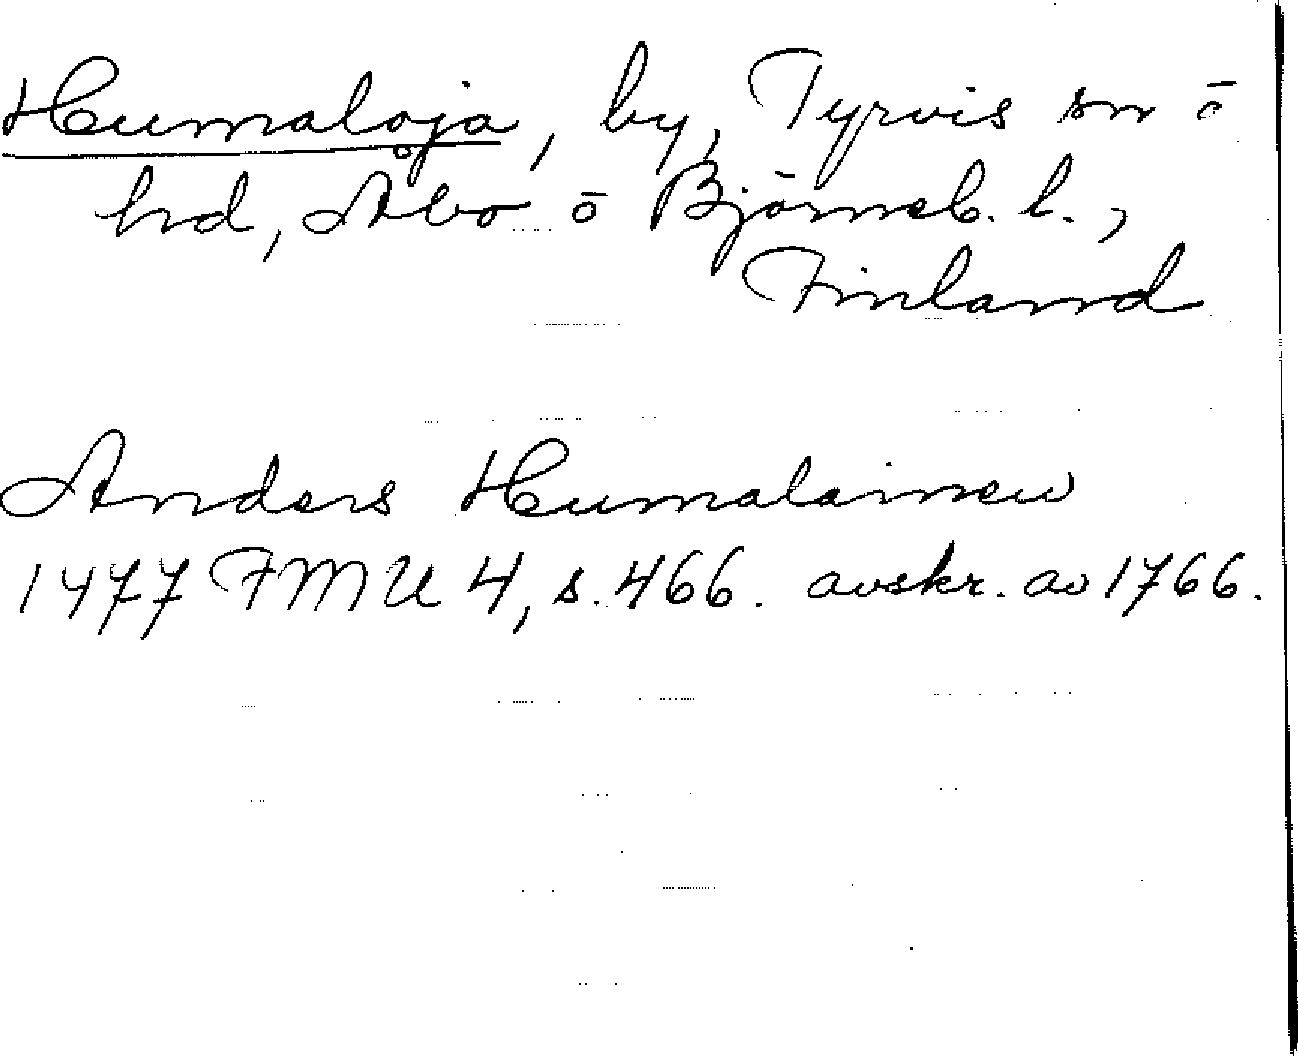 Humaloja, by, Tyrvis sn ō
hd, Åbo ō Björneb. l.,
Finland
Anders Humalainen
1477 FMU 4, s. 466. avskr. av 1766.